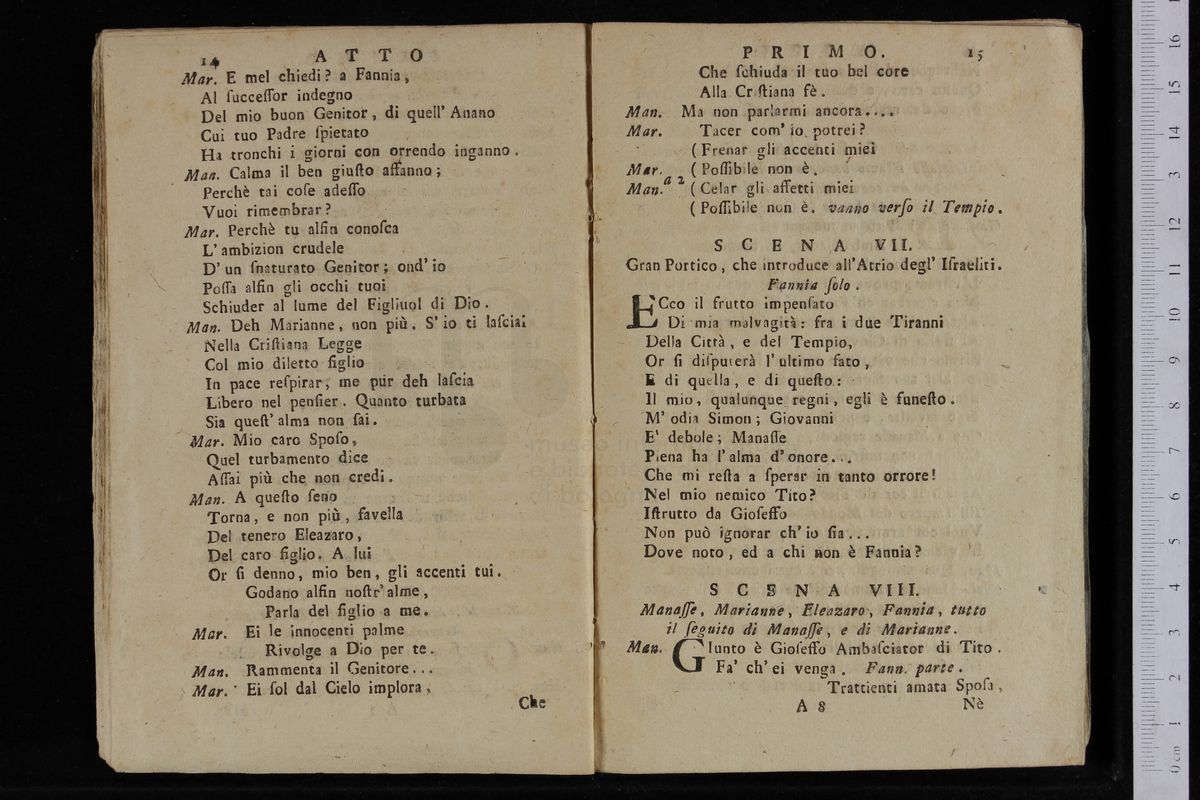 14 ATTO
Mar. E mel chiedi? a Fannia,
Al ſucceſſor indegno
Del mio buon Genitor, di quell' Anano
Cui tuo Padre ſpietato
Ha tronchi i giorni con orrendo inganno.
Man. Calma il ben giuſto affanno;
Perchè tai coſe adeſſo
Vuoi rimembrar?
Mar. Perchè tu alfin conoſca
L' ambizion crudele
D' un ſnaturato Genitor; ond' io
Poſſa alfin gli occhi tuoi
Schiuder al lume del Figliuol di Dio.
Man. Deh Marianne, non più. S' io ti laſciai
Nella Criſtiana Legge
Col mio diletto figlio
In pace reſpirar, me pur deh laſcia
Libero nel penſier. Quanto turbata
Sia queſt' alma non ſai.
Mar. Mio caro Spoſo,
Quel turbamento dice
Aſſai più che non credi.
Man. A queſto ſeno
Torna, e non più, favella
Del tenero Eleazaro,
Del caro figlio. A lui
Or ſi denno, mio ben, gli accenti tui.
Godano alfin noſtr' alme,
Parla del figlio a me.
Mar. Ei le innocenti palme
Rivolge a Dio per te.
Man. Rammenta il Genitore...
Mar. Ei ſol dal Cielo implora,
Che
PRIMO. 15
Che ſchiuda il tuo bel core
Alla Criſtiana fè.
Man. Ma non parlarmi ancora....
Mar. Tacer com' io potrei?
(Frenar gli accenti miei
Mar. (Poſſibile non è.
Man. a 2 (Celar gli affetti miei
(Poſſibile non è. vanno verſo il Tempio.
SCENA VII.
Gran Portico, che introduce all'Atrio degl' Iſraeliti.
Fannia ſolo.
ECco il frutto impenſato
Di mia malvagità: fra i due Tiranni
Della Città, e del Tempio,
Or ſi diſputerà l' ultimo fato,
E di quella, e di queſto:
Il mio, qualunque regni, egli è funeſto.
M' odia Simon; Giovanni
E' debole; Manaſſe
Piena ha l' alma d' onore...
Che mi reſta a ſperar in tanto orrore!
Nel mio nemico Tito?
Iſtrutto da Gioſeffo
Non può ignorar ch' io ſia...
Dove noto, ed a chi non è Fannia?
SCENA VIII.
Manaſſe, Marianne, Eleazaro, Fannia, tutto
il ſeguito di Manaſſe, e di Marianne.
Man. GIunto è Gioſeffo Ambaſciator di Tito.
Fa' ch' ei venga. Fann. parte.
Trattienti amata Spoſa,
A 8 Nè